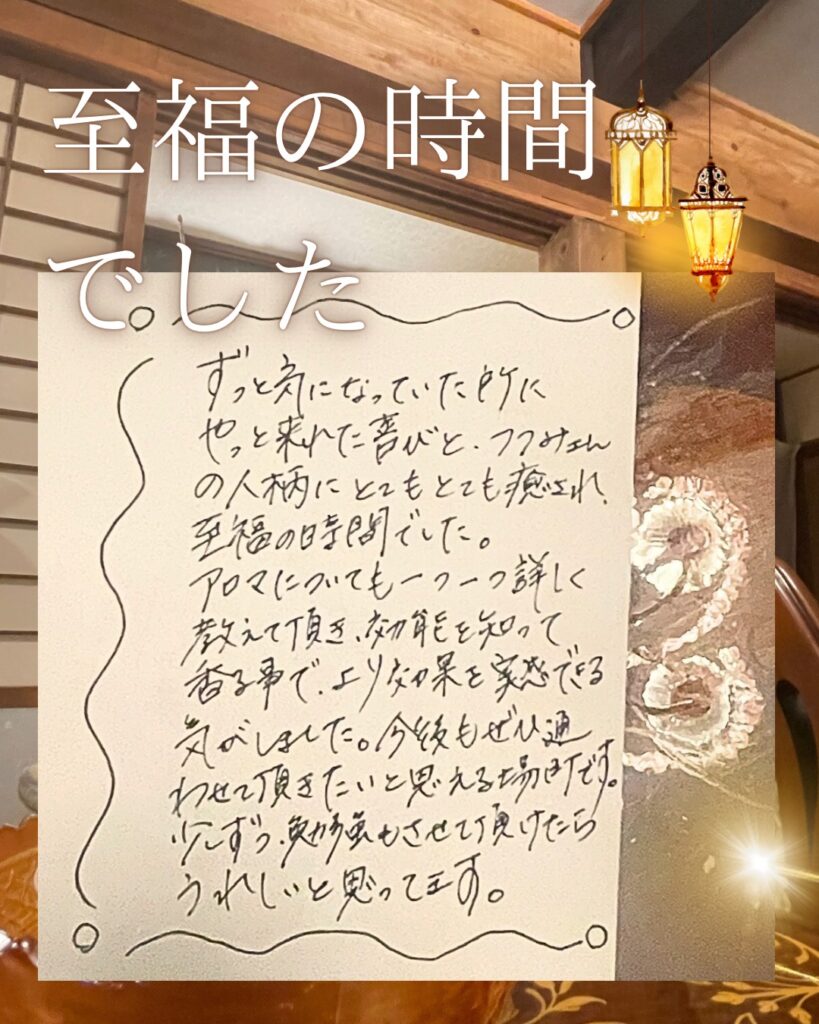 至福の時間
でした
ずっと気になっていた所に
やっと来れた喜びと、フフみさん
の人柄にとてもとても癒され、
至福の時間でした。
アロマについても一つ一つ詳しく
教えて頂き、効能を知って
香る事で、より効果を実感できる
気がしました。今後もぜひ通
わせて頂きたいと思える場所です。
少しずつ、勉強もさせて頂けたら
うれしいと思ってます。